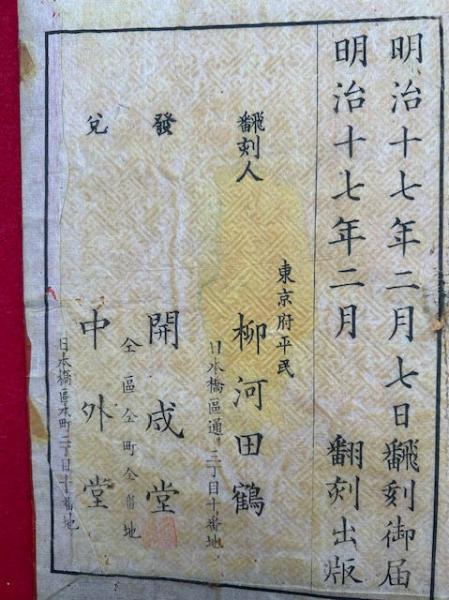 明治十七年二月七日飜刻御届
明治十七年二月　翻刻出版
東京府平民
飜刻人　柳河田鶴
日本橋區通三丁目十番地
發　開成堂
仝區仝町仝番地
兌　中外堂
日本橋區本町二丁目十番地